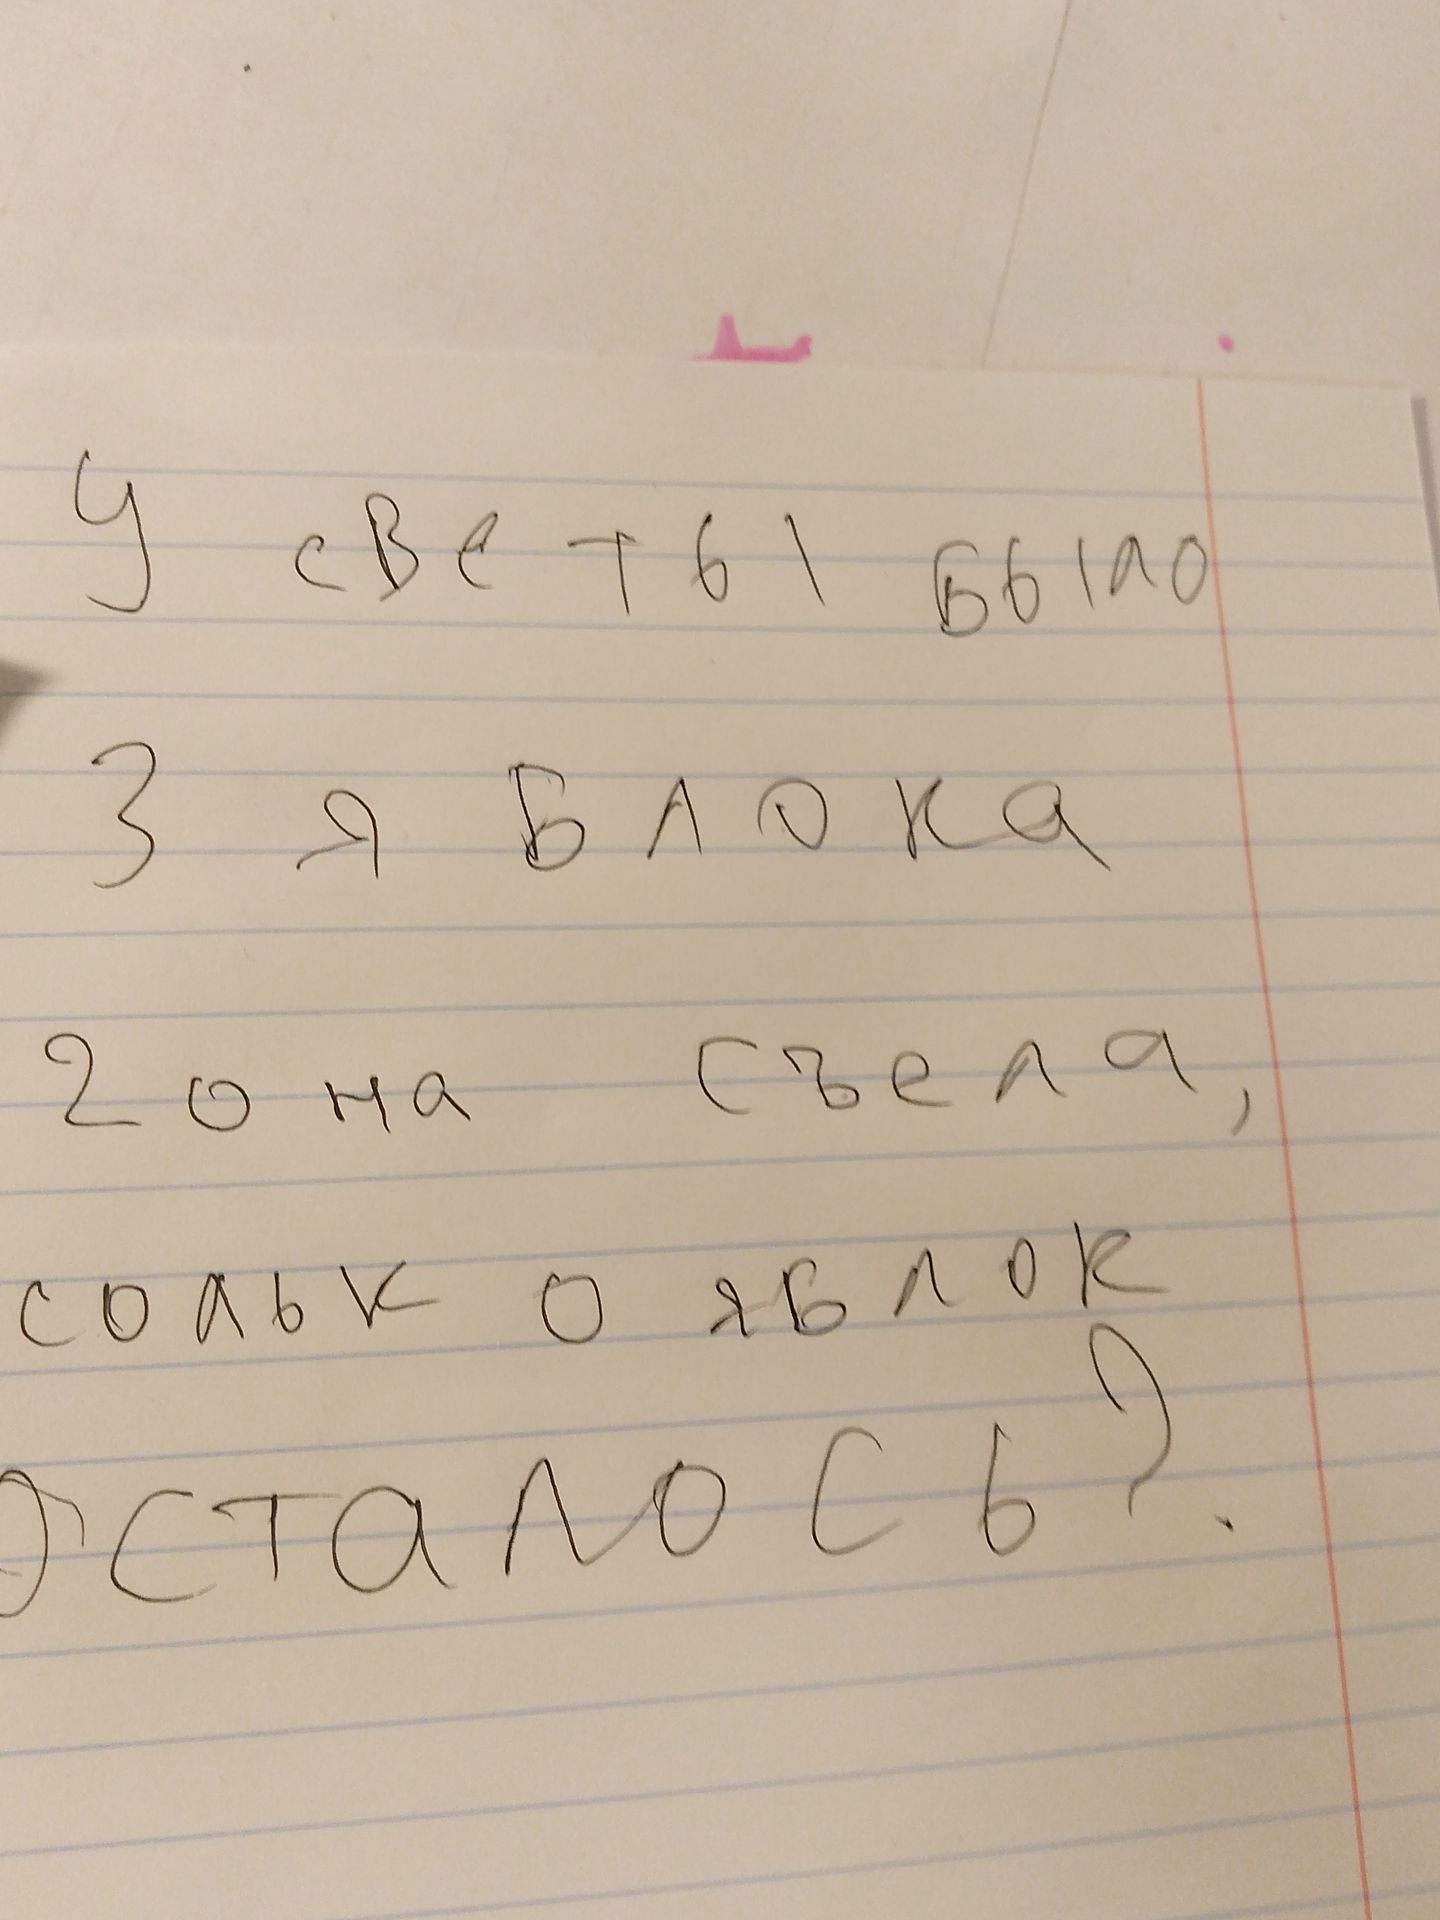 У светы было
3 яблока
2 она съела,
солько яблок
осталось?.